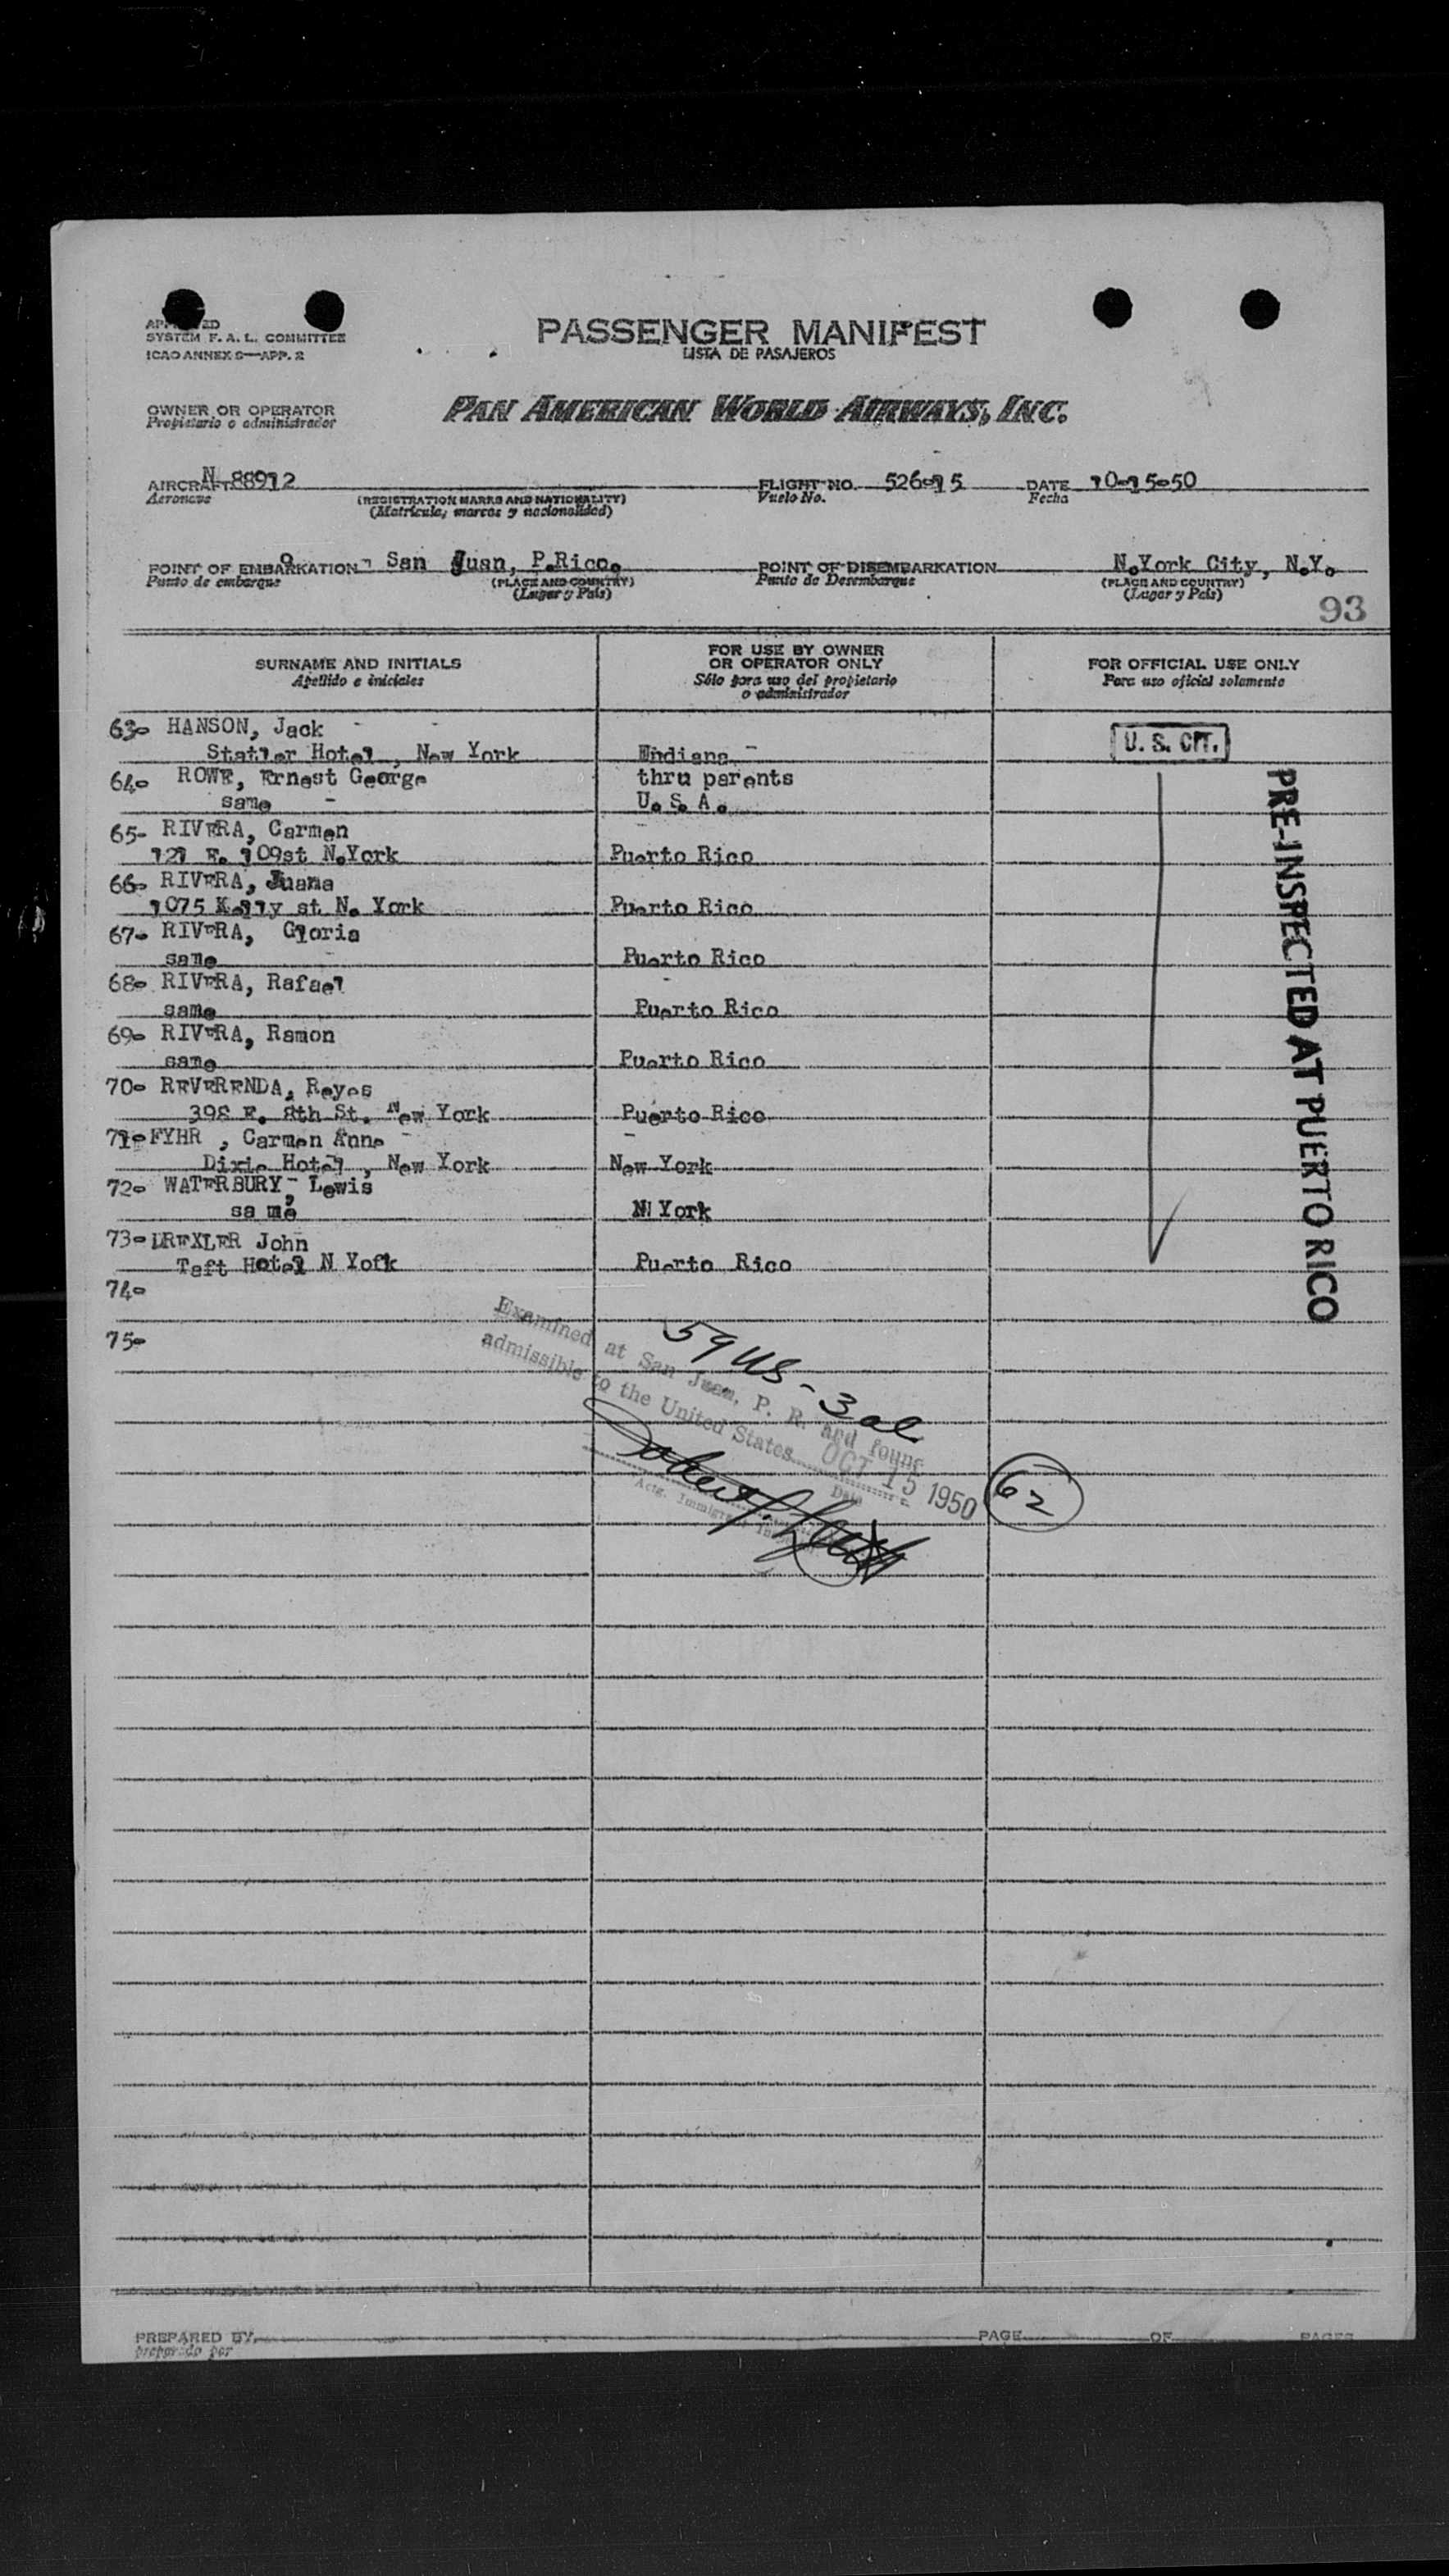 PASSENGER MANIFEST
LISTA DE PASAJEROS
SYSTEM F. A. L. COMMITTEE
ICAO ANNEX 9—APP. 2
OWNER OR OPERATOR
Propietario o administrador
PAN AMERICAN WORLD AIRWAYS, INC.
AIRCRAFT N 88912 FLIGHT NO. 526-15 DATE 10-15-50
Aeronave (REGISTRATION MARKS AND NATIONALITY) Vuelo No. Fecha
(Matricula, marcas y nacionalidad)
POINT OF EMBARKATION - San Juan, P.Rico. POINT OF DISEMBARKATION N.York City, N.Y.
Punto de embarque (PLACE AND COUNTRY) Punto de Desembarque (PLACE AND COUNTRY)
(Lugar y País) (Lugar y País)
93
SURNAME AND INITIALS
Apellido e iniciales
FOR USE BY OWNER
OR OPERATOR ONLY
Sólo para uso del propietario
o administrador
FOR OFFICIAL USE ONLY
Para uso oficial solamente
63- HANSON, Jack
Statler Hotel, New York Indiana U. S. CIT.
64- ROWE, Ernest George thru parents
same - U. S. A.
65- RIVERA, Carmen
121 E. 109st N.York Puerto Rico
66- RIVERA, Juana
1075 Kelly st N. York Puerto Rico
67- RIVERA, Gloria
same Puerto Rico
68- RIVERA, Rafael
same Puerto Rico
69- RIVERA, Ramon
same Puerto Rico
70- REVERENDA, Reyes
398 E. 8th St. New York Puerto Rico
71- FYHR , Carmen Anne
Dixie Hotel , New York New York
72- WATERBURY, Lewis
same N York
73- DREXLER John
Taft Hotel N York Puerto Rico
74-
75-
PRE-INSPECTED AT PUERTO RICO
59 US - 3 al
Examined at San Juan, P. R. and found
admissible to the United States
OCT 15 1950
Date
62
PREPARED BY PAGE OF PAGES
preparado por